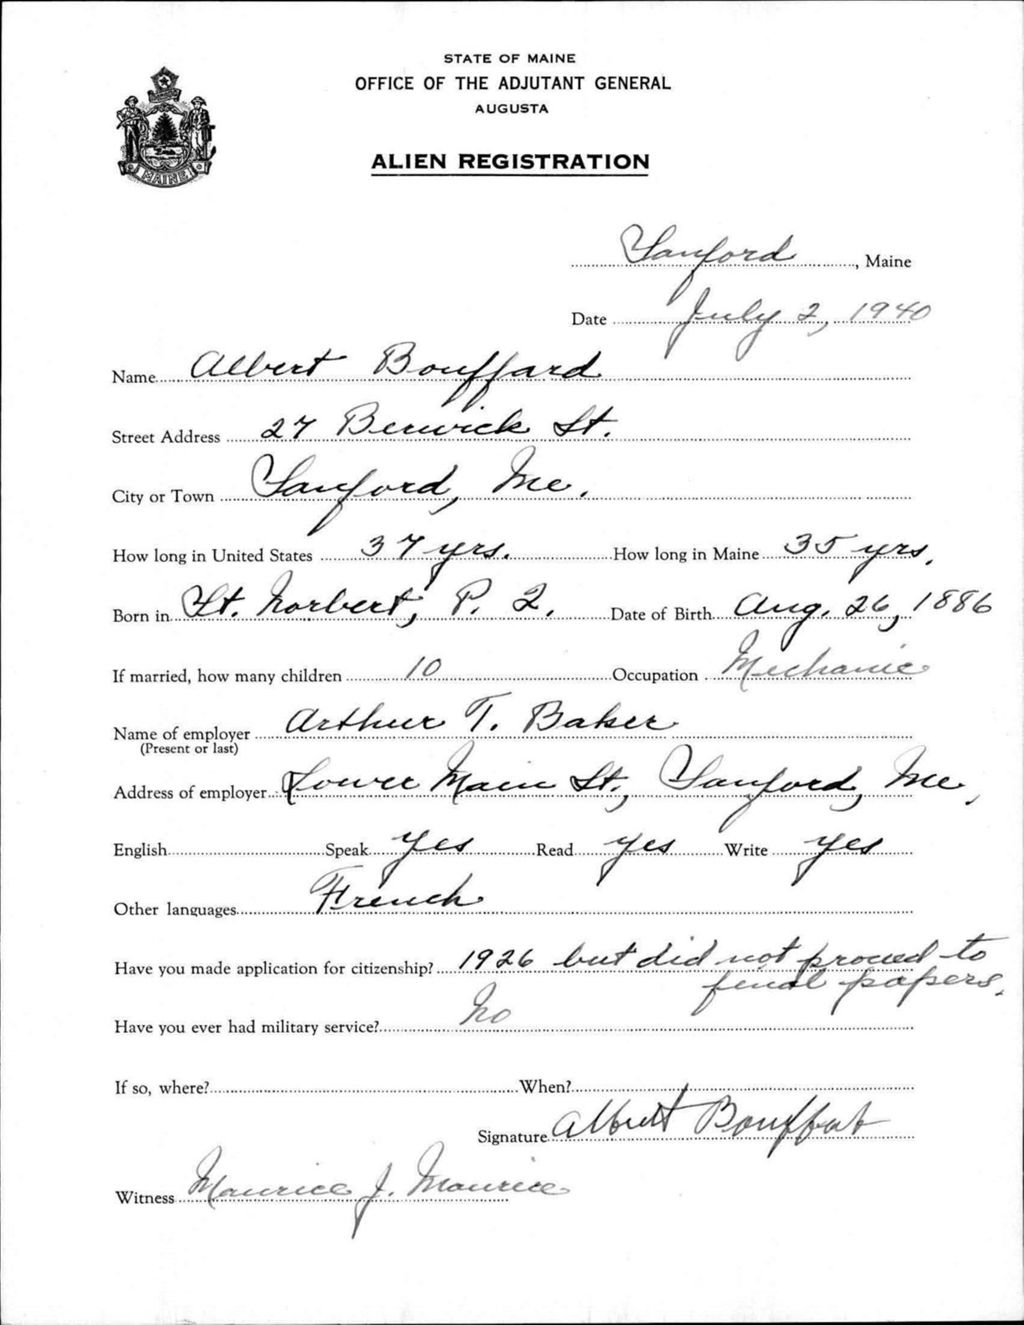 STATE OF MAINE
OFFICE OF THE ADJUTANT GENERAL
AUGUSTA
MAINE
ALIEN REGISTRATION
Sanford, Maine
Date July 2, 1940
Name Albert Bouffard
Street Address 27 Berwick St.
City or Town Sanford, Me.
How long in United States 37 yrs. How long in Maine 35 yrs.
Born in St. Norbert, P. Q. Date of Birth Aug. 26, 1886
If married, how many children 10 Occupation Mechanic
Name of employer Arthur T. Baker
(Present or last)
Address of employer Lower Main St., Sanford, Me,
English Speak yes Read yes Write yes
Other languages French
Have you made application for citizenship? 1926 but did not proceed to
final papers.
Have you ever had military service? No
If so, where? When?
Signature Albert Bouffard
Witness Maurice J. Maurice